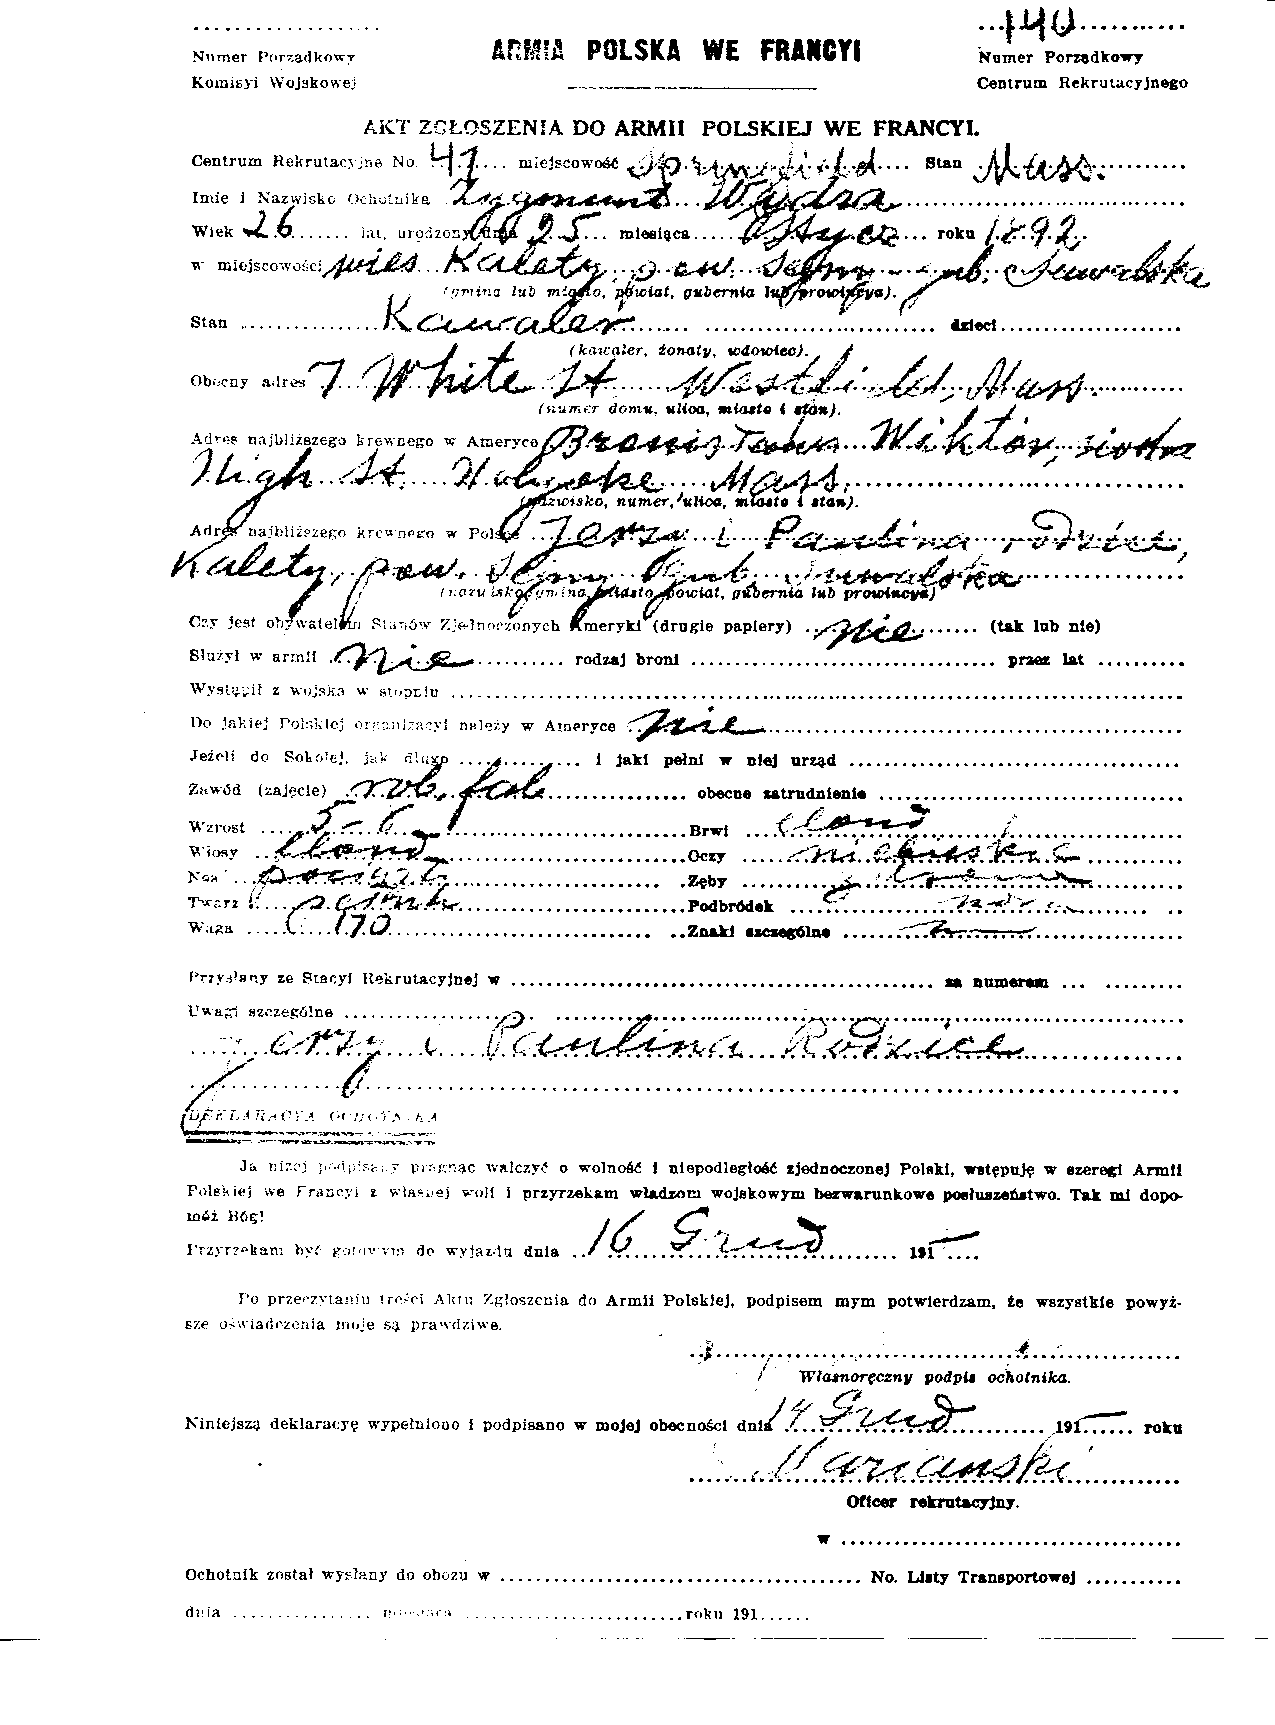 140
Numer Porządkowy
Komisyi Wojskowej
ARMIA POLSKA WE FRANCYI
Numer Porządkowy
Centrum Rekrutacyjnego
AKT ZGŁOSZENIA DO ARMII POLSKIEJ WE FRANCYI.
Centrum Rekrutacyjne No. 41 miejscowość Springfield Stan Mass.
Imie i Nazwisko Ochotnika Zygmunt Wajdza
Wiek 26 lat, urodzony dnia 25 miesiąca Stycz roku 1892
w miejscowości wieś Kalety, pow. Sejny gub. Suwalska
(gmina lub miasto, powiat, gubernia lub prowincya).
Stan Kawaler dzieci
(kawaler, żonaty, wdowiec).
Obecny adres 7 White St. Westfield, Mass.
(numer domu, ulica, miasto i stan).
Adres najbliższego krewnego w Ameryce Bronisława Wiktor, siostra
High St. Holyoke Mass.
(nazwisko, numer, ulica, miasto i stan).
Adres najbliższego krewnego w Polsce Jerzy i Paulina, rodzice,
Kalety, pow. Sejny gub. Suwalska
(nazwisko, gmina, miasto, powiat, gubernia lub prowincya)
Czy jest obywatelem Stanów Zjednoczonych Ameryki (drugie papiery) nie (tak lub nie)
Służył w armii nie rodzaj broni przez lat
Wystąpił z wojska w stopniu
Do jakiej Polskiej organizacyi należy w Ameryce nie
Jeżeli do Sokołej, jak długo i jaki pełni w niej urząd
Zawód (zajęcie) rob. fab. obecne zatrudnienie
Wzrost 5-6 Brwi blond
Włosy blond Oczy niebieskie
Nos Zęby
Twarz Podbródek
Waga 170 Znaki szczególne
Przysłany ze Stacyi Rekrutacyjnej w za numerem
Uwagi szczególne
Jerzy i Paulina Rodzice
DEKLARACYA OCHOTNIKA
Ja niżej podpisany pragnąc walczyć o wolność i niepodległość zjednoczonej Polski, wstępuję w szeregi Armii
Polskiej we Francyi z własnej woli i przyrzekam władzom wojskowym bezwarunkowe posłuszeństwo. Tak mi dopo-
móż Bóg!
Przyrzekam być gotowym do wyjazdu dnia 16 Grud 191
Po przeczytaniu treści Aktu Zgłoszenia do Armii Polskiej, podpisem mym potwierdzam, że wszystkie powyż-
sze oświadczenia moje są prawdziwe.
Własnoręczny podpis ochotnika.
Niniejszą deklaracyę wypełniono i podpisano w mojej obecności dnia 14 Grud 191 roku
Maryanski
Oficer rekrutacyjny.
w
Ochotnik został wysłany do obozu w No. Listy Transportowej
dnia miesiąca roku 191